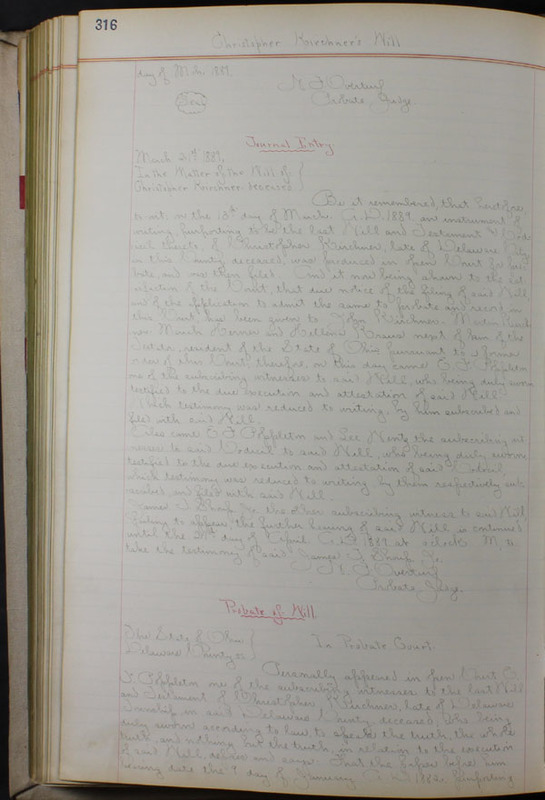 316
Christopher Kirschner's Will
day of Mch. 1889.
Seal
Probate Judge.
Journal Entry
March 21st 1889.
In the Matter of the Will of
Christopher Kirschner deceased
Be it remembered, that heretofore
to wit, on the 15th day of March A.D. 1889 an instrument of
writing, purporting to be the last Will and Testament &
thereto, of Christopher Kirschner, late of Delaware
in this County, deceased, was produced in open Court for pro-
bate, and was then filed. And it now being shown to the sat
isfaction of the Court, that due notice of the filing of said Will
and of the application to admit the same to probate and record in
this Court has been given to John Kirschner, Martin Kirsch
ner next of kin of the
Testator, resident of the State of Ohio pursuant to a former
order of this Court; therefore, on this day came O. F. Poppleton
one of the subscribing witnesses to said Will, who being duly sworn
testified to the due execution and attestation of said Will.
Which testimony was reduced to writing, by him subscribed and
filed with said Will.
Also came O F Poppleton and the subscribing wit
nesses to said Codicil to said Will, who being duly sworn,
testified to the due execution and attestation of said Codicil,
which testimony was reduced to writing by them respectively sub
scribed, and filed with said Will.
James the other subscribing witness to said Will
failing to appear, the further hearing of said Will is continued
until the day of April A.D. 1889 at o'clock M, to
take the testimony of said James
Probate Judge.
Probate of Will.
The State of Ohio
Delaware County ss
In Probate Court.
Personally appeared in open Court, O.
F. Poppleton one of the subscribing witnesses to the last Will
and Testament of Christopher Kirschner, late of Delaware
Township in said Delaware County, deceased, who being
duly sworn according to law, to speak the truth, the whole
truth, and nothing but the truth, in relation to the execution
of said Will, depose and says: That the paper before him
bearing date the 9 day of January A.D. 1882 purporting